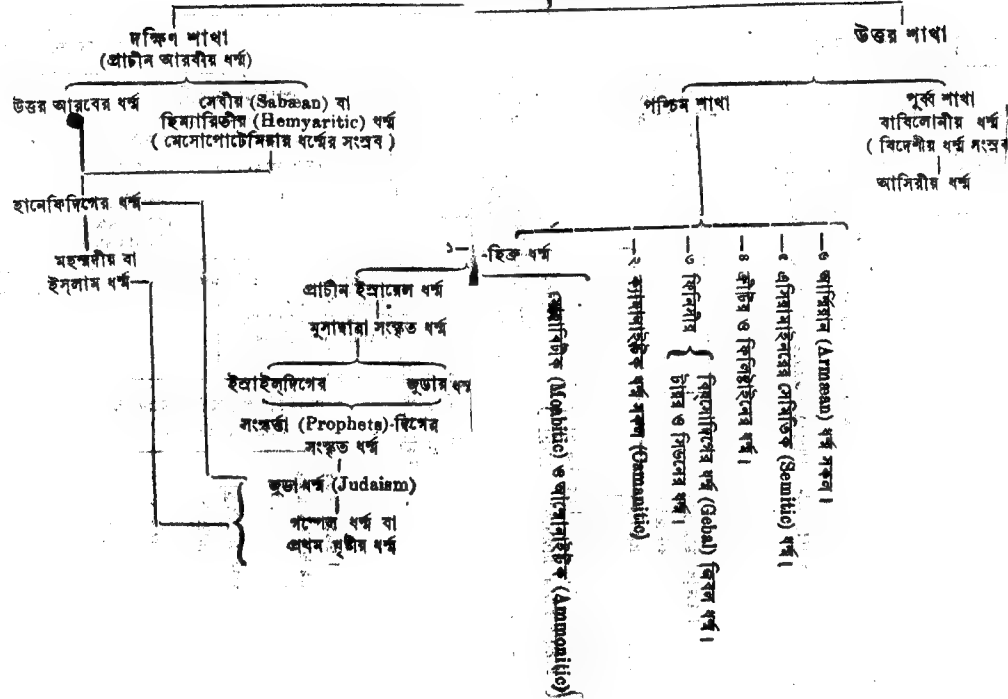 দক্ষিণ শাখা
(প্রাচীন আরবীয় ধর্ম্ম)
উত্তর শাখা
উত্তর আরবের ধর্ম্ম
সেবীয় (Sabæan) বা
হিম্যারিতীয় (Hemyaritic) ধর্ম্ম
(মেসোপোটেমিয়ার ধর্ম্মের সংস্রব)
পশ্চিম শাখা
পূর্ব্ব শাখা
বাবিলোনীয় ধর্ম্ম
(বিদেশীয় ধর্ম্ম সংস্রব
আসিরীয় ধর্ম্ম
হানেফিদিগের ধর্ম্ম
মহম্মদীয় বা
ইস্‌লাম ধর্ম্ম
১—হিব্রু ধর্ম্ম
প্রাচীন ইস্রায়েল ধর্ম্ম
মুসাদ্বারা সংস্কৃত ধর্ম্ম
ইস্রাইল্‌দিগের
জুডার ধর্ম্ম
সংস্কর্ত্তা (Prophets)-দিগের
সংস্কৃত ধর্ম্ম
জুডা ধর্ম্ম (Judaism)
গস্পেল ধর্ম্ম বা
প্রথম খৃষ্টীয় ধর্ম্ম
মোয়াবিটীক (Moabitic) ও আম্মোনাইটীক (Ammonitic)
—২ ক্যানানাইটীক ধর্ম্ম সকল (Canaanitic)
—৩ ফিনিসীয়
বিব্লোসদিগের ধর্ম্ম (Gebal) জিবল ধর্ম্ম।
টায়র ও সিডনের ধর্ম্ম।
—৪ ক্রীটির ও ফিলিষ্টাইনের ধর্ম্ম।
—৫ এসিয়ামাইনরের সেমিতিক (Semitic) ধর্ম্ম।
—৬ আর্ম্মিয়ান (Armæan) ধর্ম্ম সকল।